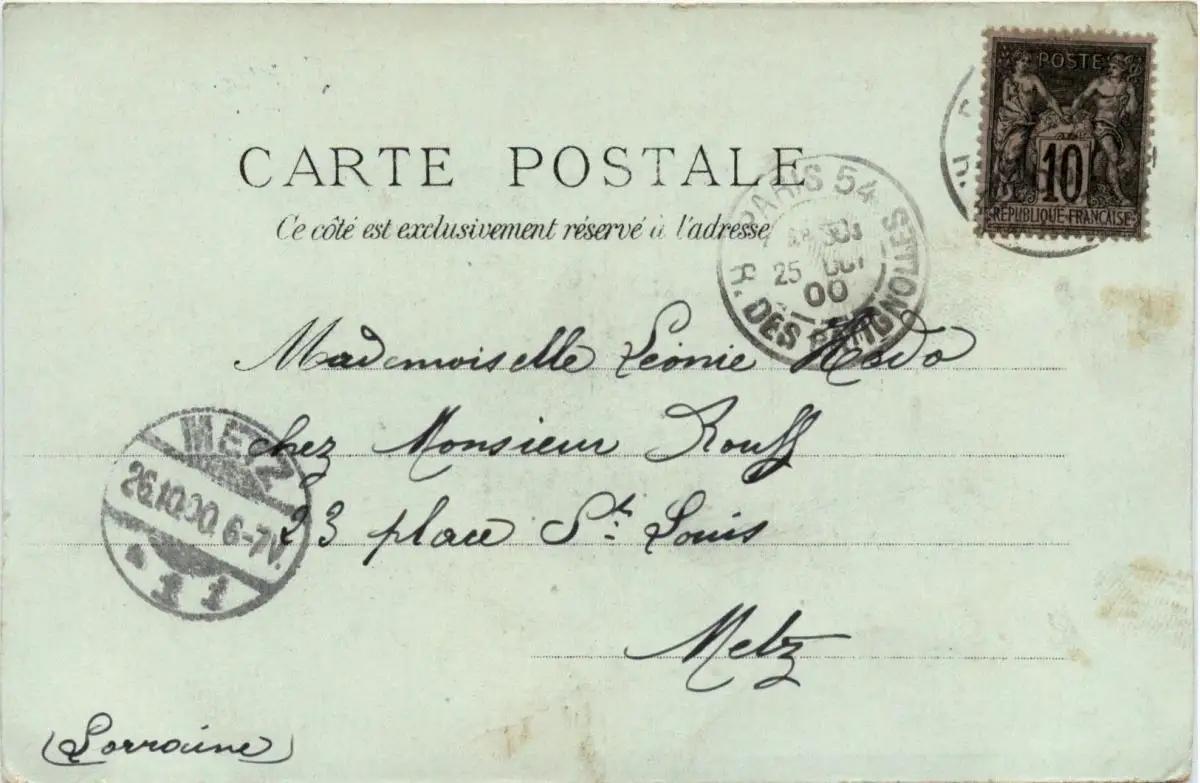 POSTE
10
RÉPUBLIQUE FRANÇAISE
CARTE POSTALE
Ce côté est exclusivement réservé à l'adresse
PARIS 54
25 OCT
00
R. DES BATIGNOLLES
Mademoiselle Léonie Hodo
chez Monsieur Rouff
23 place St. Louis
Metz
(Lorraine)
METZ
26.10.00. 6-7V.
* 1 1